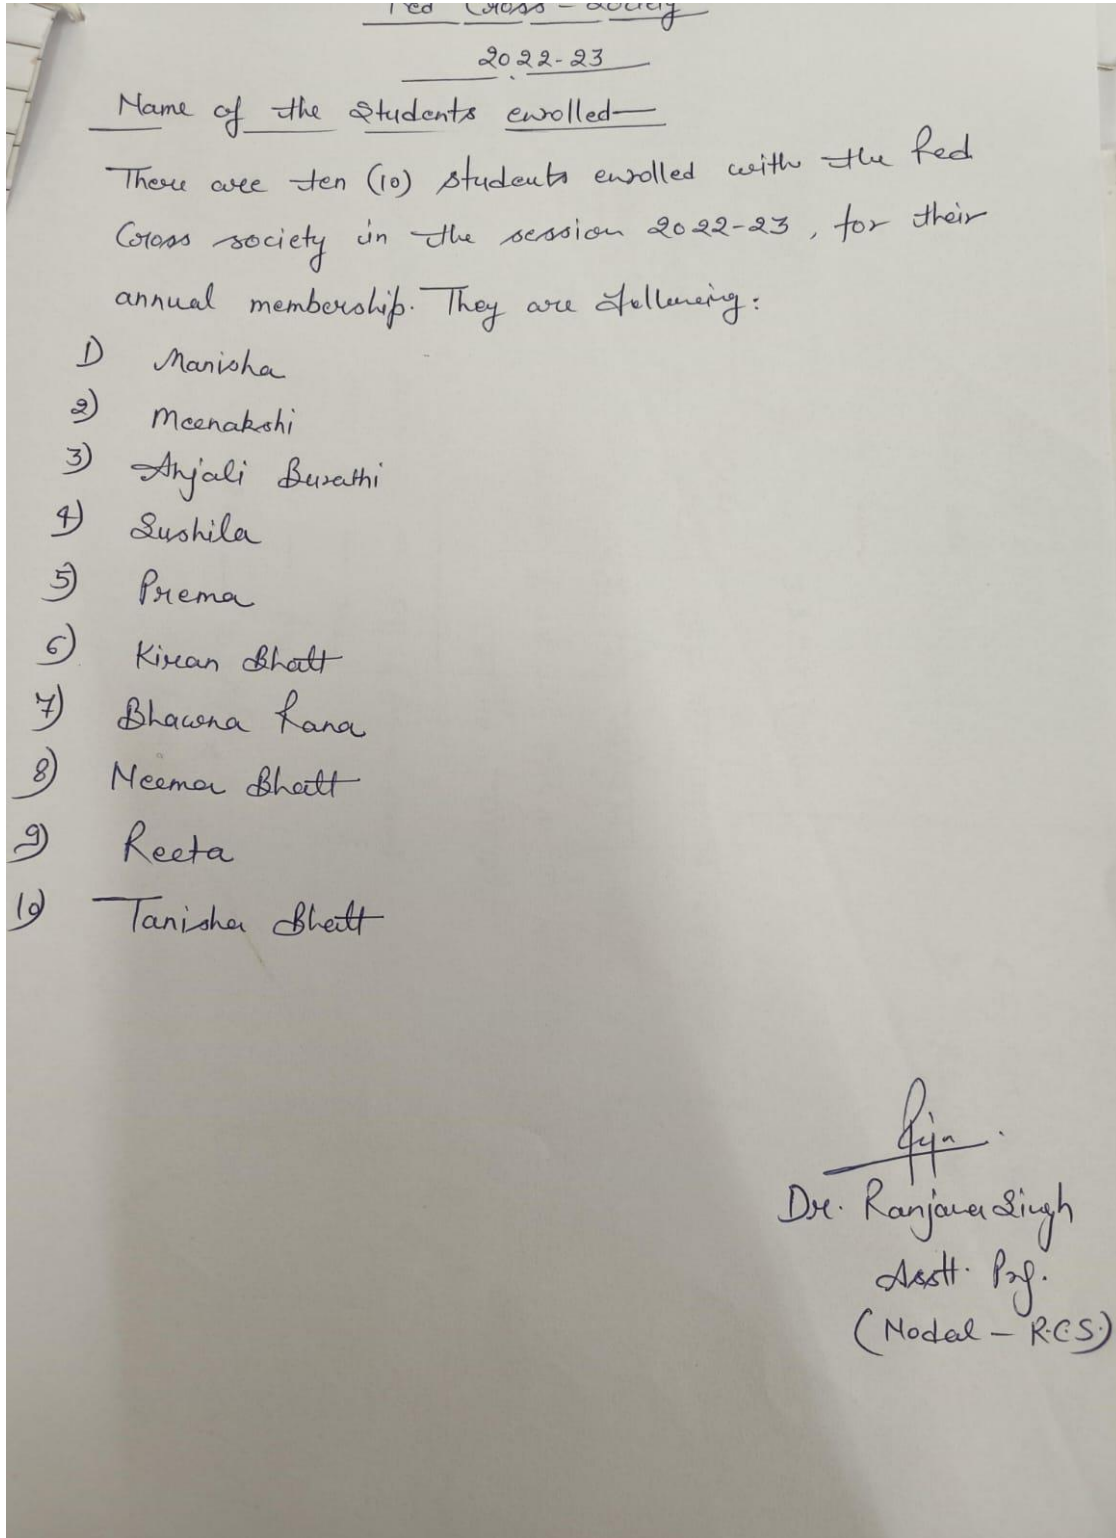 Red Cross - Society
2022-23
Name of the Students enrolled—
There are ten (10) students enrolled with the Red
Cross society in the session 2022-23, for their
annual membership. They are following:
1) Manisha
2) Meenakshi
3) Anjali Burathi
4) Sushila
5) Prema
6) Kiran Bhatt
7) Bhawna Rana
8) Neema Bhatt
9) Reeta
10) Tanisha Bhatt
Dr. Ranjana Singh
Asstt. Prof.
(Nodal - R.C.S.)